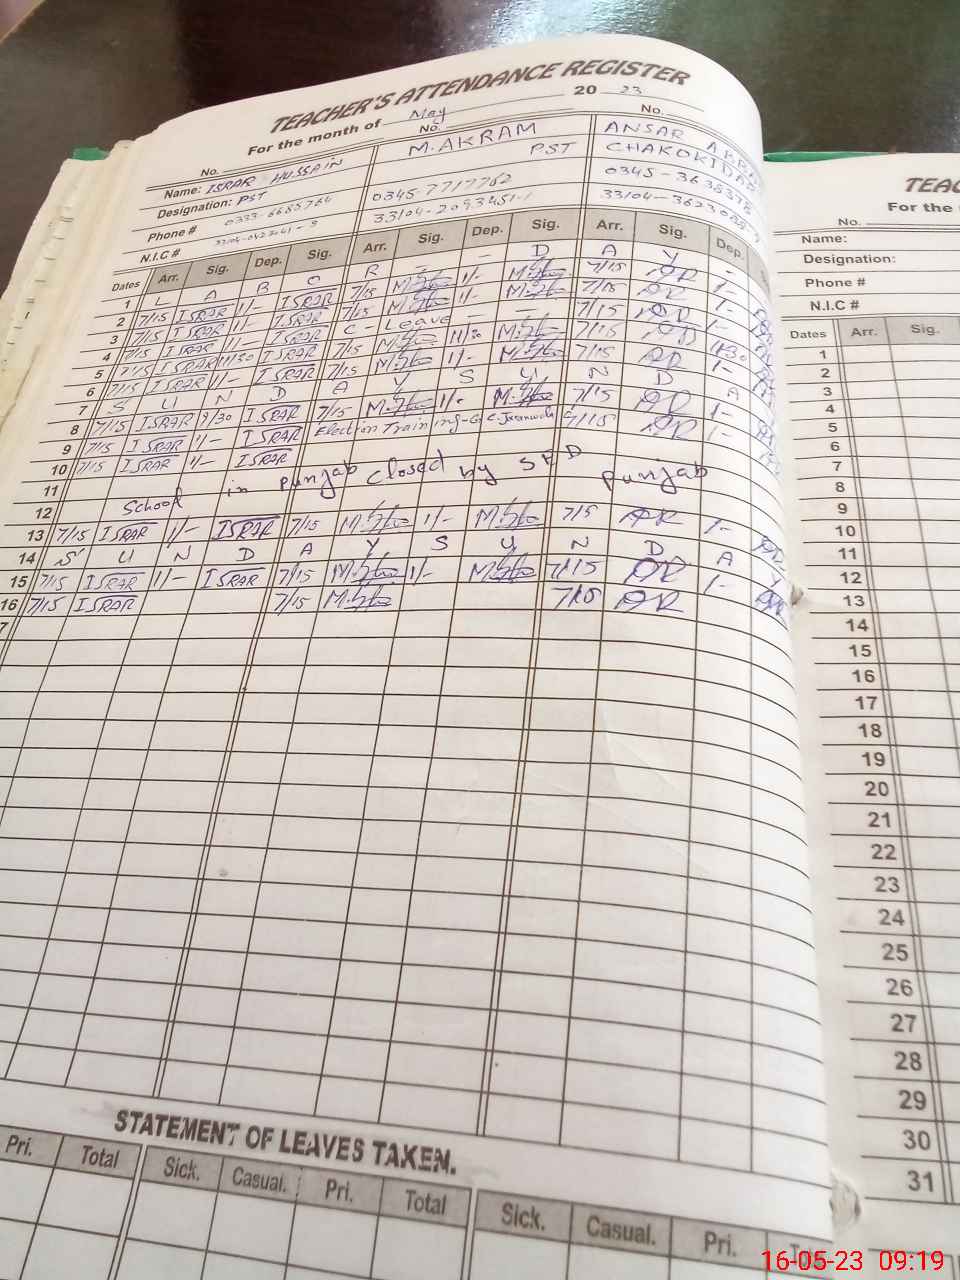 TEACHER'S ATTENDANCE REGISTER
For the month of May 2023
No. No. No.
Name: ISRAR HUSSAIN M. AKRAM ANSAR
Designation: PST PST CHAKOKIDAR
Phone # 0333-6685764 0345-7717762 0345-3638378
N.I.C # 33104-2093451-1
Dates Arr. Sig. Dep. Sig. Arr. Sig. Dep. Sig. Arr. Sig. Dep.
1 L A B O R - - D A Y -
2 7/15 ISRAR 1/- ISRAR 7/15 1/- 7/15 1/-
3 7/15 ISRAR 1/- ISRAR 7/15 1/- 7/15 1/-
4 7/15 ISRAR 1/- ISRAR C - Leave - - 7/15 1/-
5 7/15 ISRAR 11/30 ISRAR 7/15 11/30 7/15 11/30
6 7/15 ISRAR 1/- ISRAR 7/15 1/- 7/15 1/-
7 S U N D A Y S U N D A
8 7/15 ISRAR 9/30 ISRAR 7/15 1/- 7/15 1/-
9 7/15 ISRAR 1/- ISRAR Election Training - 7/15 1/-
10 7/15 ISRAR 1/- ISRAR
11
12 School in punjab closed by SED punjab
13 7/15 ISRAR 1/- ISRAR 7/15 1/- 7/15 1/-
14 S U N D A Y S U N D A Y
15 7/15 ISRAR 1/- ISRAR 7/15 1/- 7/15 1/-
16 7/15 ISRAR 7/15 7/15
7
STATEMENT OF LEAVES TAKEN.
Pri. Total Sick. Casual. Pri. Total Sick. Casual. Pri.
TEAC
For the
No.
Name:
Designation:
Phone #
N.I.C #
Dates Arr. Sig.
1
2
3
4
5
6
7
8
9
10
11
12
13
14
15
16
17
18
19
20
21
22
23
24
25
26
27
28
29
30
31
16-05-23 09:19